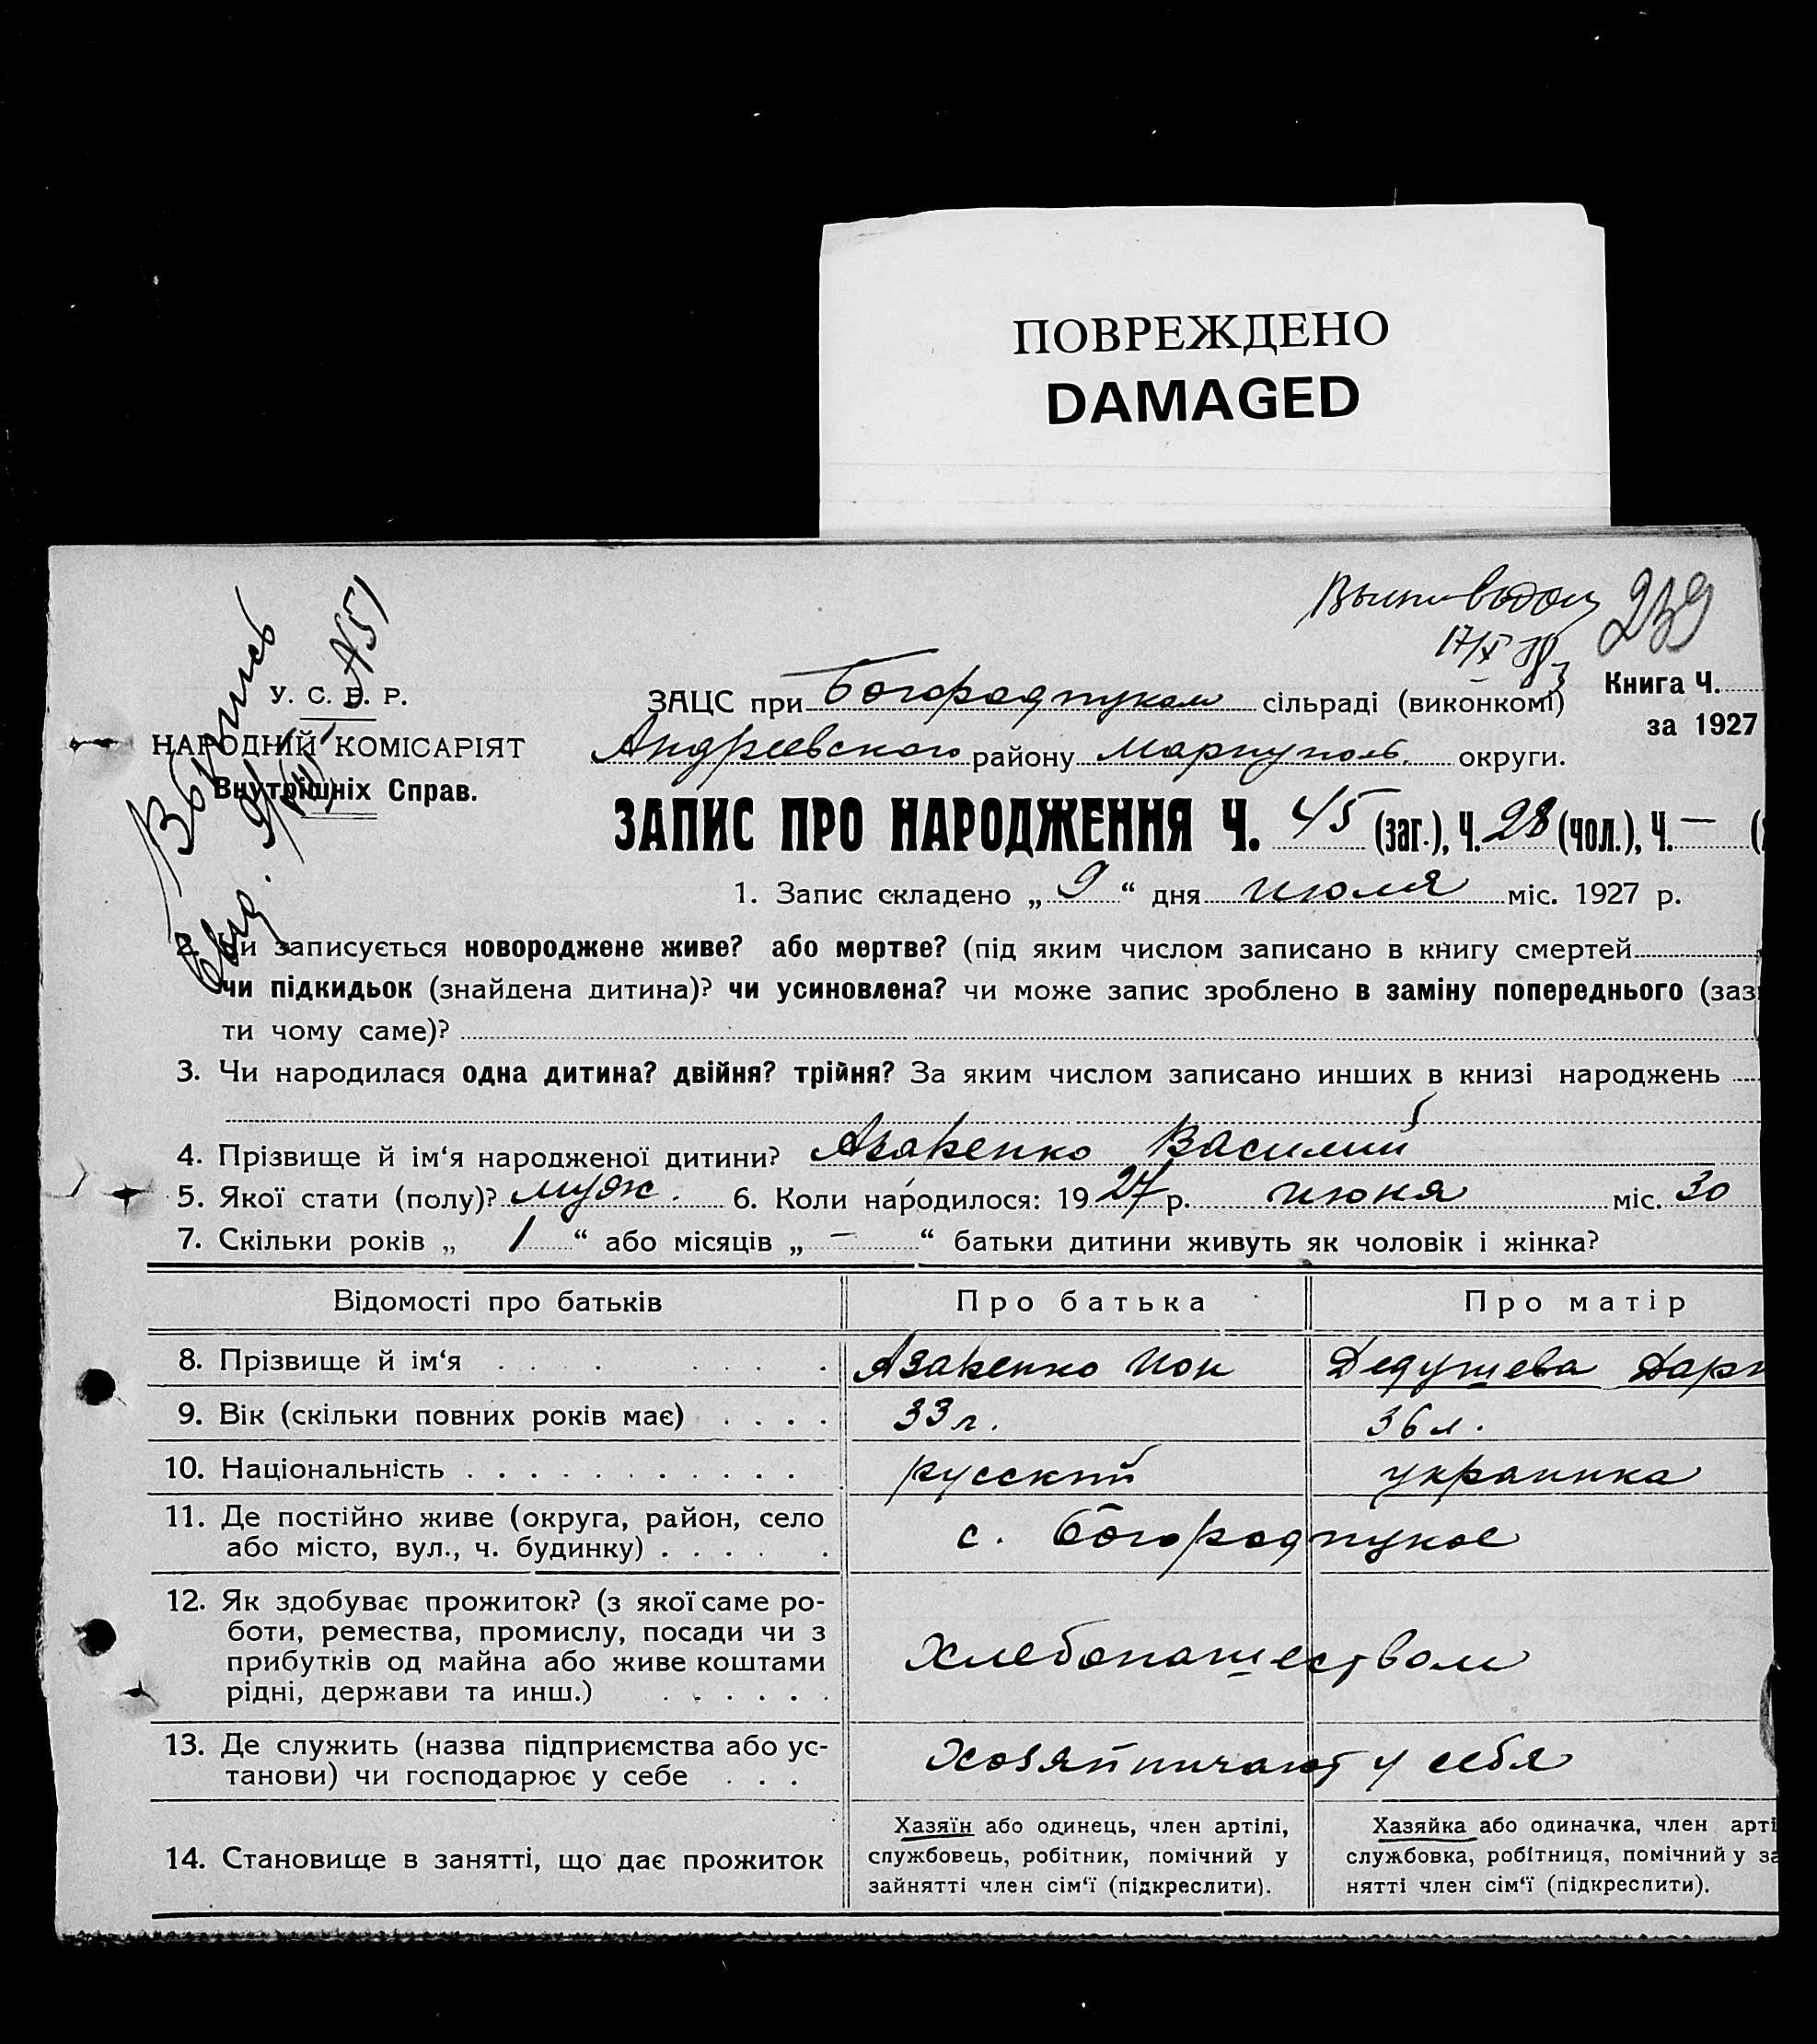 ПОВРЕЖДЕНО
DAMAGED
239
17/X
№51
У. С. Р. Р.
НАРОДНІЙ КОМІСАРІЯТ
Внутрішніх Справ.
ЗАЦС при Богородицком сільраді (виконкомі)
Книга Ч.
за 1927
Андреевского району Мариуполь. округи.
ЗАПИС ПРО НАРОДЖЕННЯ Ч. 45 (заг.), Ч. 28 (чол.), Ч. — (
1. Запис складено „ 9 “ дня июля міс. 1927 р.
2. Чи записується новороджене живе? або мертве? (під яким числом записано в книгу смертей
чи підкидьок (знайдена дитина)? чи усиновлена? чи може запис зроблено в заміну попереднього (заз
ти чому саме)?
3. Чи народилася одна дитина? двійня? трійня? За яким числом записано инших в книзі народжень
4. Прізвище й ім‘я народженої дитини? Азаренко Василий
5. Якої стати (полу)? муж. 6. Коли народилося: 1927 р. июня міс. 30
7. Скільки років „ 1 “ або місяців „ — “ батьки дитини живуть як чоловік і жінка?
Відомості про батьків Про батька Про матір
8. Прізвище й ім‘я Азаренко Ион Дедушева Дарь
9. Вік (скільки повних років має) 33 г. 36 л.
10. Національність русский украинка
11. Де постійно живе (округа, район, село
або місто, вул., ч. будинку) с. Богородицкое
12. Як здобуває прожиток? (з якої саме ро-
боти, ремества, промислу, посади чи з
прибутків од майна або живе коштами
рідні, держави та инш.) Хлебопашеством
13. Де служить (назва підприємства або ус-
танови) чи господарює у себе Хозяйничают у себя
14. Становище в занятті, що дає прожиток
Хазяїн або одинець, член артілі,
службовець, робітник, помічний у
зайнятті член сім‘ї (підкреслити).
Хазяйка або одиначка, член арті
службовка, робітниця, помічний у за
нятті член сім‘ї (підкреслити).